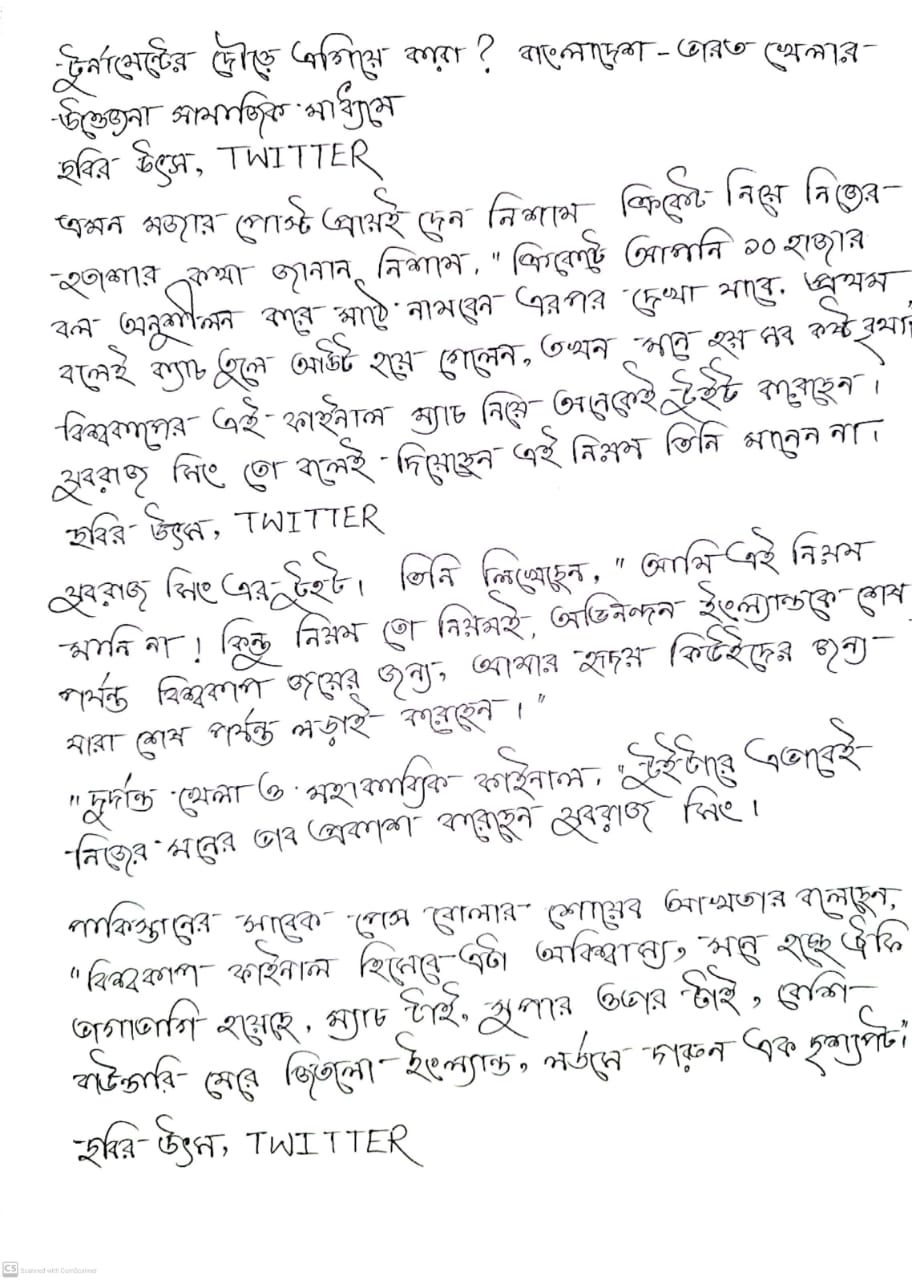 টুর্নামেন্টের দৌড়ে এগিয়ে কারা? বাংলাদেশ - ভারত খেলার
উত্তেজনা সামাজিক মাধ্যমে
ছবির উৎস, TWITTER
এমন মজার পোস্ট প্রায়ই দেন নিশাম ক্রিকেট নিয়ে নিজের
হতাশার কথা জানান নিশাম, "ক্রিকেটে আপনি ১০ হাজার
বল অনুশীলন করে মাঠে নামবেন এরপর দেখা যাবে, প্রথম
বলেই ক্যাচ তুলে আউট হয়ে গেলেন, তখন মনে হয় সব কষ্ট বৃথা।
বিশ্বকাপের এই ফাইনাল ম্যাচ নিয়ে অনেকেই টুইট করেছেন।
যুবরাজ সিং তো বলেই দিয়েছেন এই নিয়ম তিনি মানেন না।
ছবির উৎস, TWITTER
যুবরাজ সিং এর টুইট। তিনি লিখেছেন, "আমি এই নিয়ম
মানি না! কিন্তু নিয়ম তো নিয়মই, অভিনন্দন ইংল্যান্ডকে শেষ
পর্যন্ত বিশ্বকাপ জয়ের জন্য, আমার হৃদয় কিউইদের জন্য
যারা শেষ পর্যন্ত লড়াই করেছেন।"
"দুর্দান্ত খেলা ও মহাকাব্যিক ফাইনাল, "টুইটারে এভাবেই
নিজের মনের ভাব প্রকাশ করেছেন যুবরাজ সিং।
পাকিস্তানের সাবেক পেস বোলার শোয়েব আখতার বলেছেন,
"বিশ্বকাপ ফাইনাল হিসেবে এটা অবিশ্বাস্য, মনে হচ্ছে ট্রফি
ভাগাভাগি হয়েছে, ম্যাচ টাই, সুপার ওভার টাই, বেশি
বাউন্ডারি মেরে জিতলো ইংল্যান্ড, লর্ডসে দারুন এক দৃশ্যপট।"
ছবির উৎস, TWITTER
CS Scanned with CamScanner